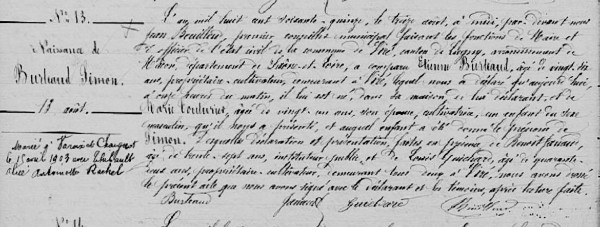 N° 13.
Naissance de
Burtiaud Simon.
13 août.
Marié à
le 15 avril 1903 avec Thibault
Antoinette Rachel
L'an mil huit cent soixante-quinze, le treize août, à midi, par devant nous
Jean premier conseiller municipal faisant les fonctions de Maire et
d'officier de l'état civil de la commune de canton de Lugny, arrondissement de
Mâcon, département de Saône-et-Loire, a comparu Etienne Burtiaud, âgé de vingt-six
ans, propriétaire-cultivateur, demeurant à lequel nous a déclaré qu'aujourd'hui,
à onze heures du matin, il lui est né, dans sa maison, de lui déclarant, et de
Marie âgée de vingt-un ans, son épouse, cultivatrice, un enfant du sexe
masculin, qu'il nous a présenté, et auquel enfant a été donné le prénom de
Simon. Lesquelles déclaration et présentation, faites en présence de Benoit
âgé de trente-sept ans, instituteur public, et de Louis Guichard, âgé de quarante-
deux ans, propriétaire-cultivateur, demeurant tous deux à nous avons dressé
le présent acte que nous avons signé avec le déclarant et les témoins, après lecture faite.
Burtiaud Guichard
N° 14